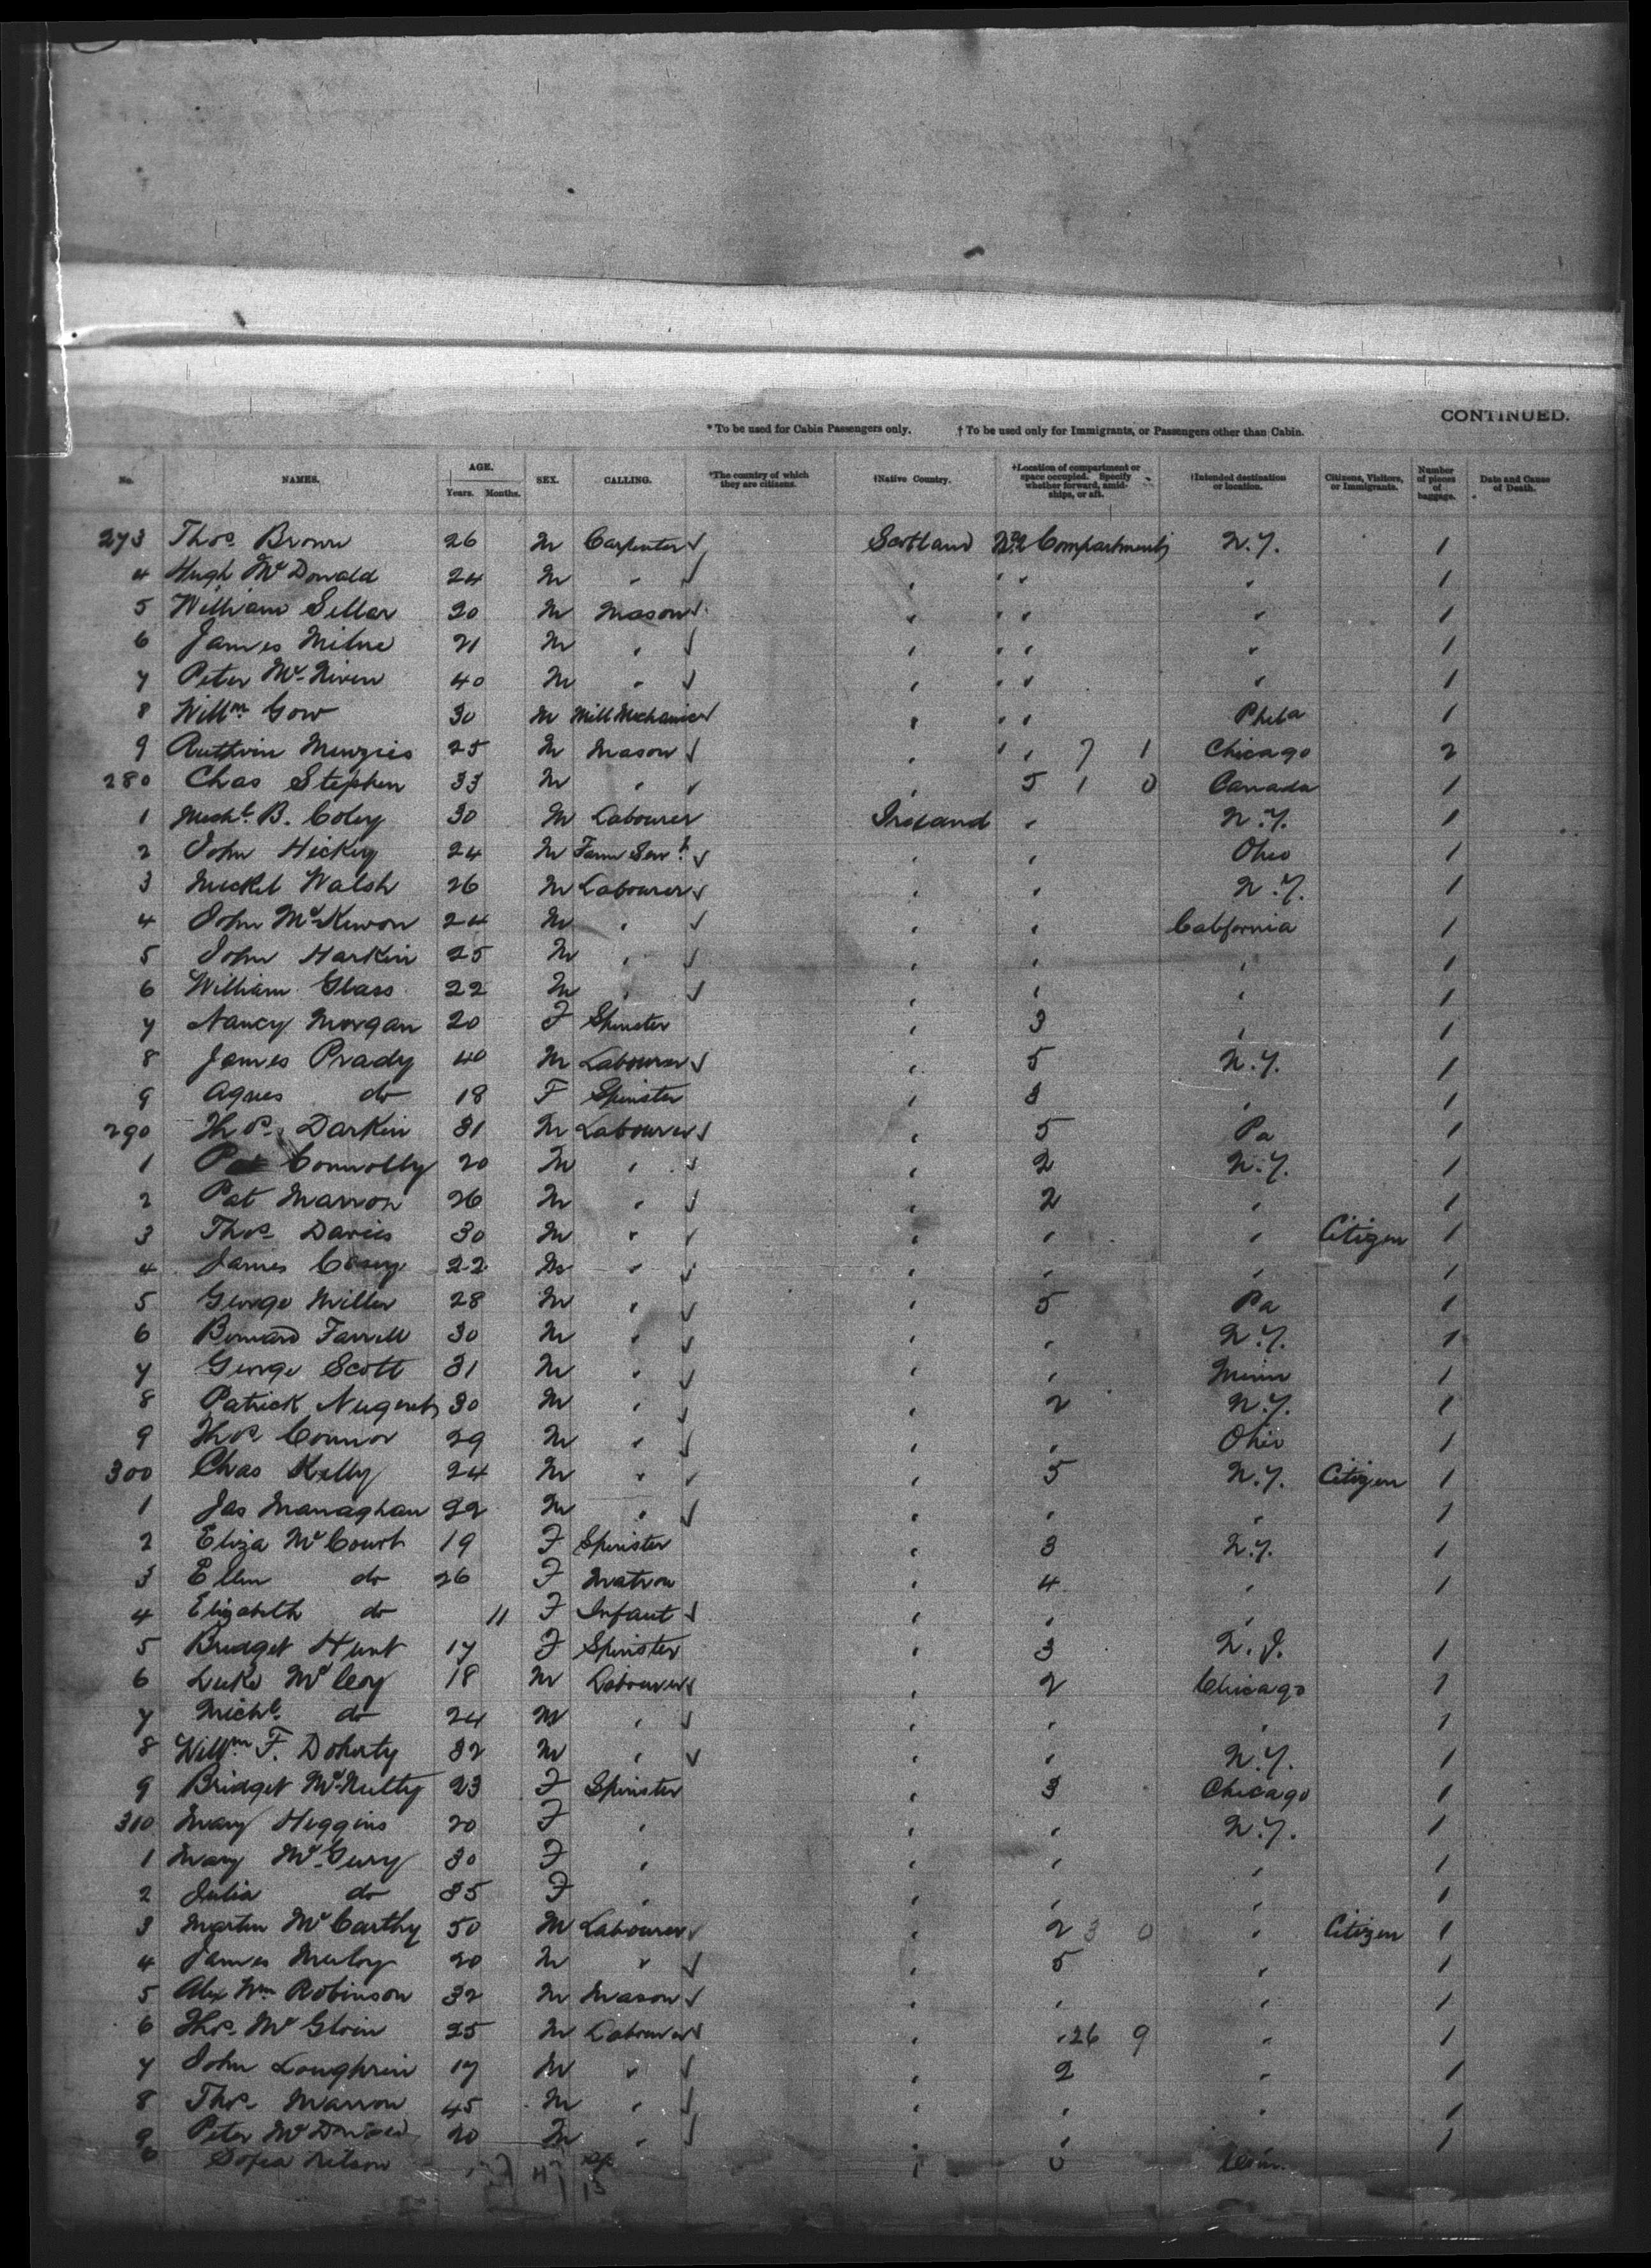 CONTINUED.
*To be used for Cabin Passengers only. †To be used only for Immigrants, or Passengers other than Cabin.
No. NAMES. AGE. Years. Months. SEX. CALLING. *The country of which they are citizens. †Native Country. †Location of compartment or space occupied. Specify whether forward, amidships, or aft. †Intended destination or location. Citizens, Visitors, or Immigrants. Number of pieces of baggage. Date and Cause of Death.
273 Thos. Brown 26 M Carpenter Scotland No. 2 Compartment N.Y. 1
4 Hugh McDonald 24 M " " " " " 1
5 William Sellar 20 M Mason " " " " 1
6 James Milne 21 M " " " " " 1
7 Peter McNiven 40 M " " " " " 1
8 Willm Gow 30 M Mill Mechanic " " " Phila 1
9 Ruthvin Menzies 25 M Mason " " " 7 1 Chicago 2
280 Chas Stephen 33 M " " 5 1 0 Canada 1
1 Michl. B. Coley 30 M Labourer Ireland " N.Y. 1
2 John Hickey 24 M Farm Servt. " " Ohio 1
3 Mickel Walsh 26 M Labourer " " N.Y. 1
4 John McKewon 24 M " " " California 1
5 John Harkin 25 M " " " " 1
6 William Glass 22 M " " " " 1
7 Nancy Morgan 20 F Spinster " 3 " 1
8 James Prady 40 M Labourer " 5 N.Y. 1
9 Agnes do 18 F Spinster " 3 " 1
290 Thos. Darkin 31 M Labourer " 5 Pa 1
1 Pat Connolly 20 M " " 2 N.Y. 1
2 Pat Marron 26 M " " 2 " 1
3 Thos. Davies 30 M " " " " Citizen 1
4 James Casey 22 M " " " " 1
5 George Miller 28 M " " 5 Pa 1
6 Bernard Farrell 30 M " " " N.Y. 1
7 George Scott 31 M " " " Minn 1
8 Patrick Nugent 30 M " " 2 N.Y. 1
9 Thos. Connor 29 M " " " Ohio 1
300 Chas Kelly 24 M " " 5 N.Y. Citizen 1
1 Jas Managhan 22 M " " " " 1
2 Eliza McCourt 19 F Spinster " 3 N.Y. 1
3 Ellen do 26 F Matron " 4 " 1
4 Elizabeth do 11 F Infant " " "
5 Bridget Hunt 17 F Spinster " 3 N.J. 1
6 Luke McCoy 18 M Labourer " 2 Chicago 1
7 Michl. do 24 M " " " " 1
8 Willm F. Doherty 32 M " " " N.Y. 1
9 Bridget McNulty 23 F Spinster " 3 Chicago 1
310 Mary Higgins 20 F " " " N.Y. 1
1 Mary McGury 30 F " " " " 1
2 Julia do 35 F " " " " 1
3 Martin McCarthy 50 M Labourer " 2 3 0 " Citizen 1
4 James 20 M " " 5 " 1
5 Alex Wm Robinson 32 M Mason " " " 1
6 Thos. McGloin 25 M Labourer " " 26 9 " 1
7 John Loughrin 17 M " " 2 " 1
8 Thos. Marron 45 M " " " " 1
9 Peter 20 M " " " " 1
Sofia Nelson "